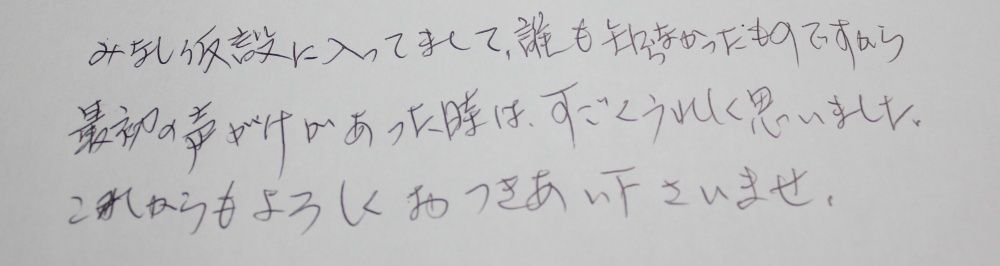 みなし仮設に入ってまして、誰も知らなかったものですから
最初の声がけがあった時は、すごくうれしく思いました。
これからもよろしくおつきあい下さいませ。